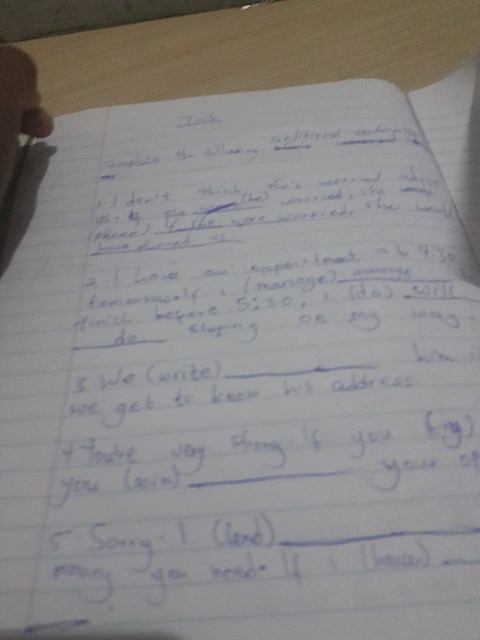 Task
Complete the following conditional
1. I don't think she's worried about
you. If she (be) worried, she
(phone) If she were worried, she would
have phoned us.
2. I have an appointment at 4:30
tomorrow. If I (manage) manage
finish before 5:30, I (do) will
do shoping on my way.
3 We (write) him if
we get to know his address
4 You're very strong. If you (try)
you (win) your
5 Sorry. I (lend)
money you need. If I (have)